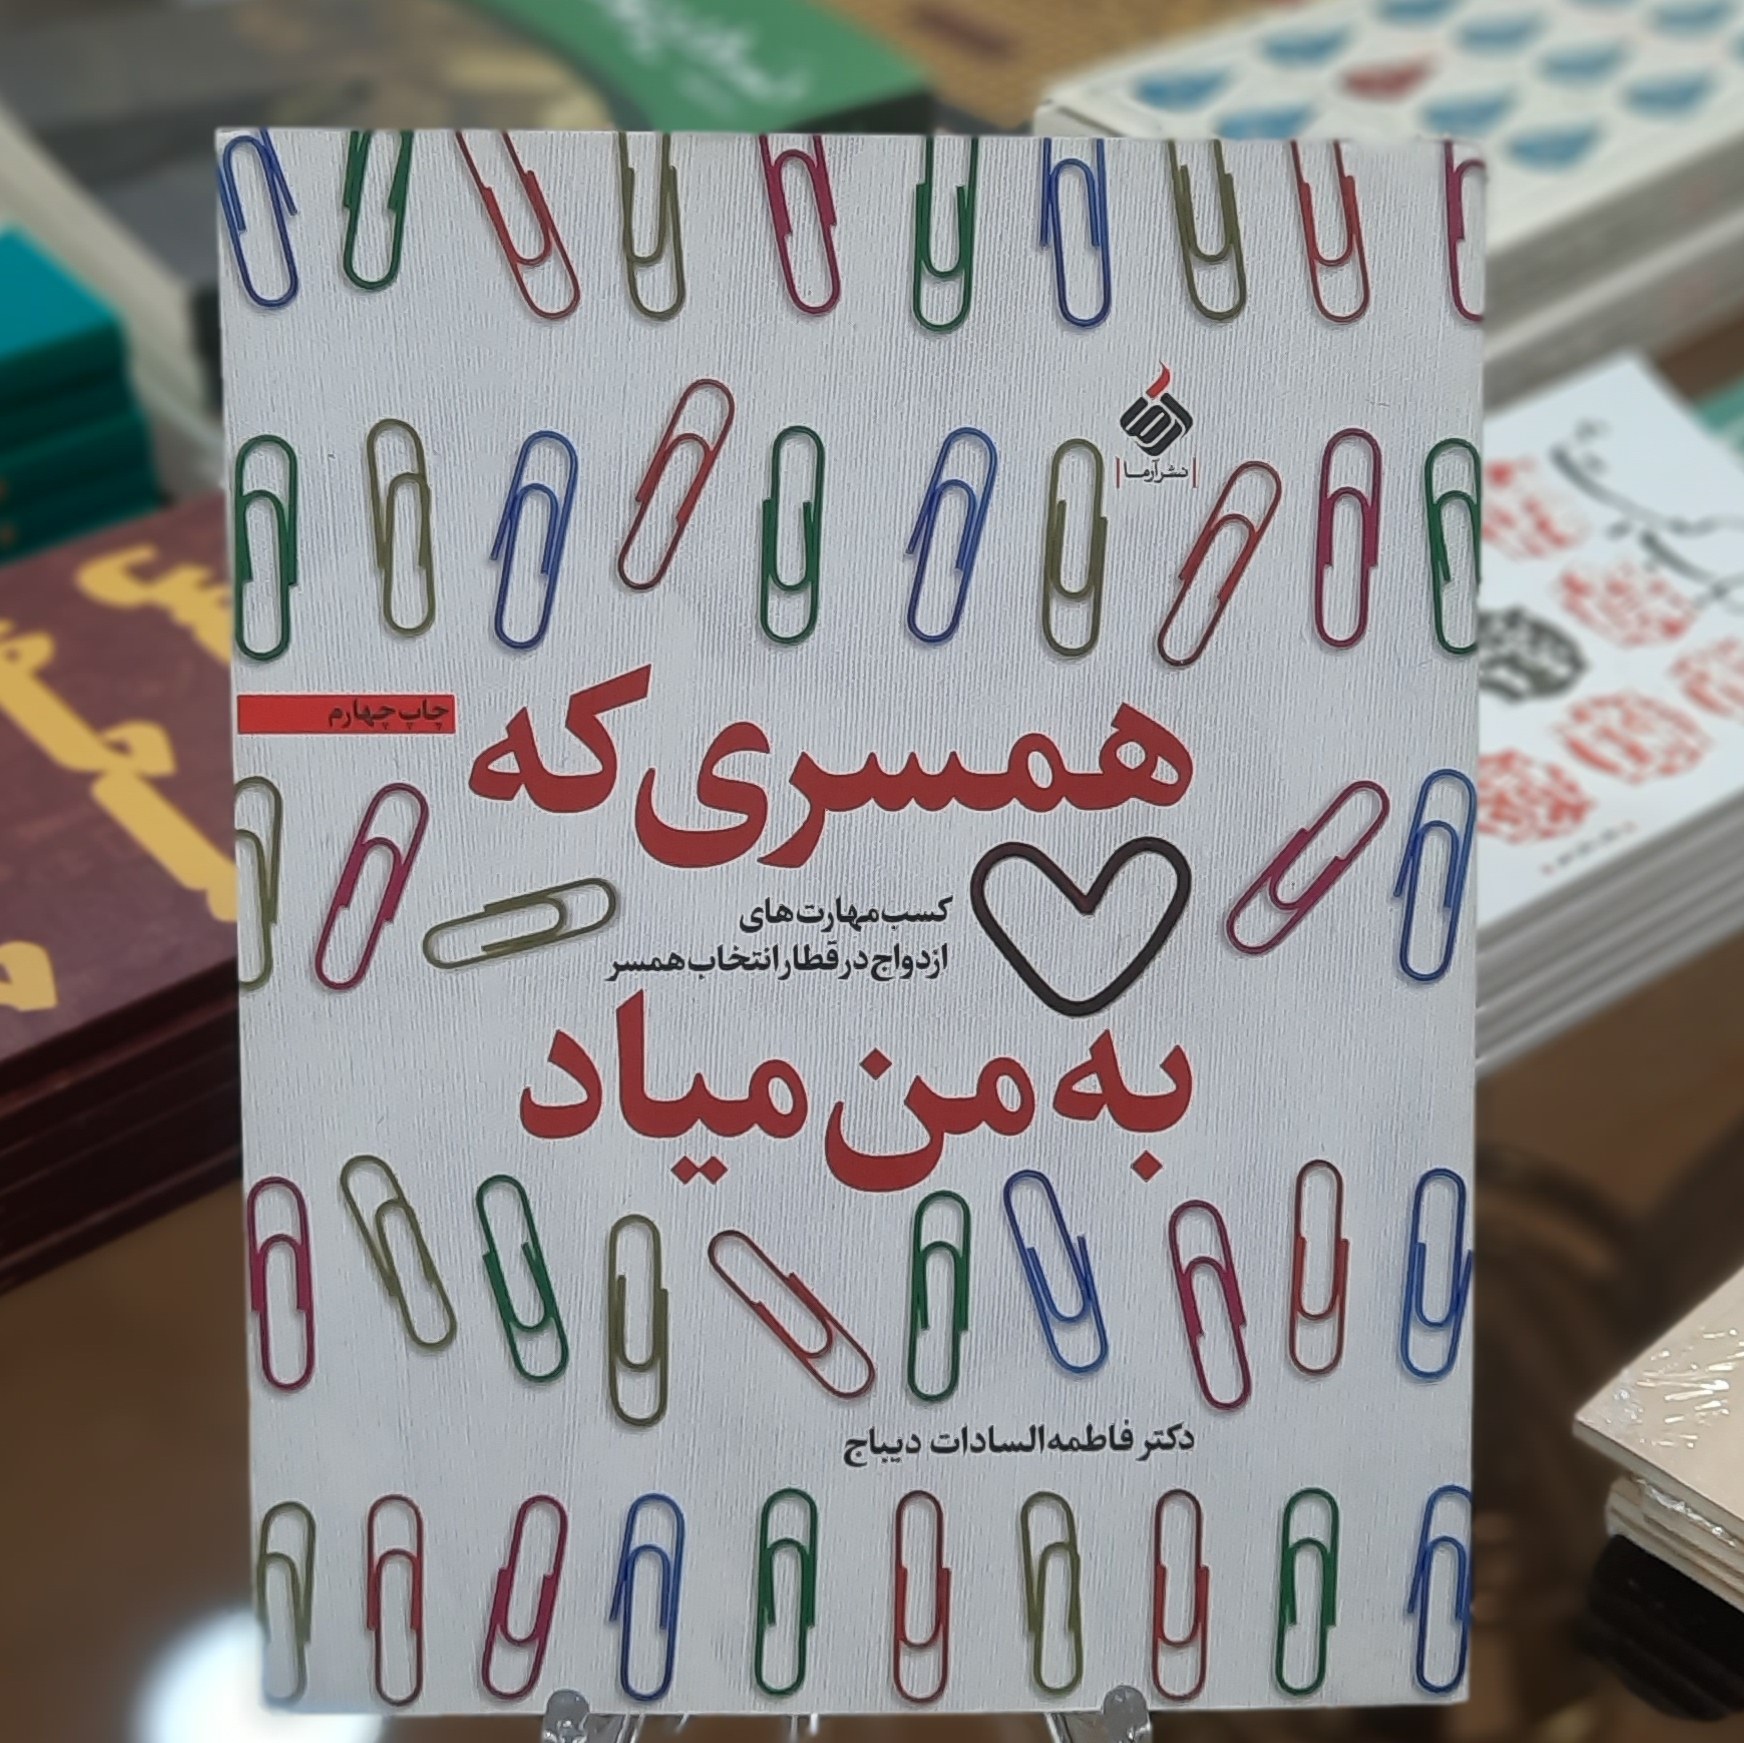 نشر آرما
همسری که
چاپ چهارم
کسب مهارت‌های
ازدواج در قطار انتخاب همسر
به من میاد
دکتر فاطمه السادات دیباج